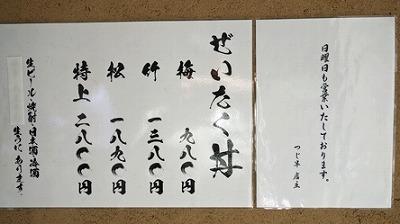 日曜日も営業いたしております。
つじ半 店主
ぜいたく丼
梅 九八〇円
竹 一三八〇円
松 一八九〇円
特上 二八〇〇円
生ビール 焼酎 日本酒 冷酒